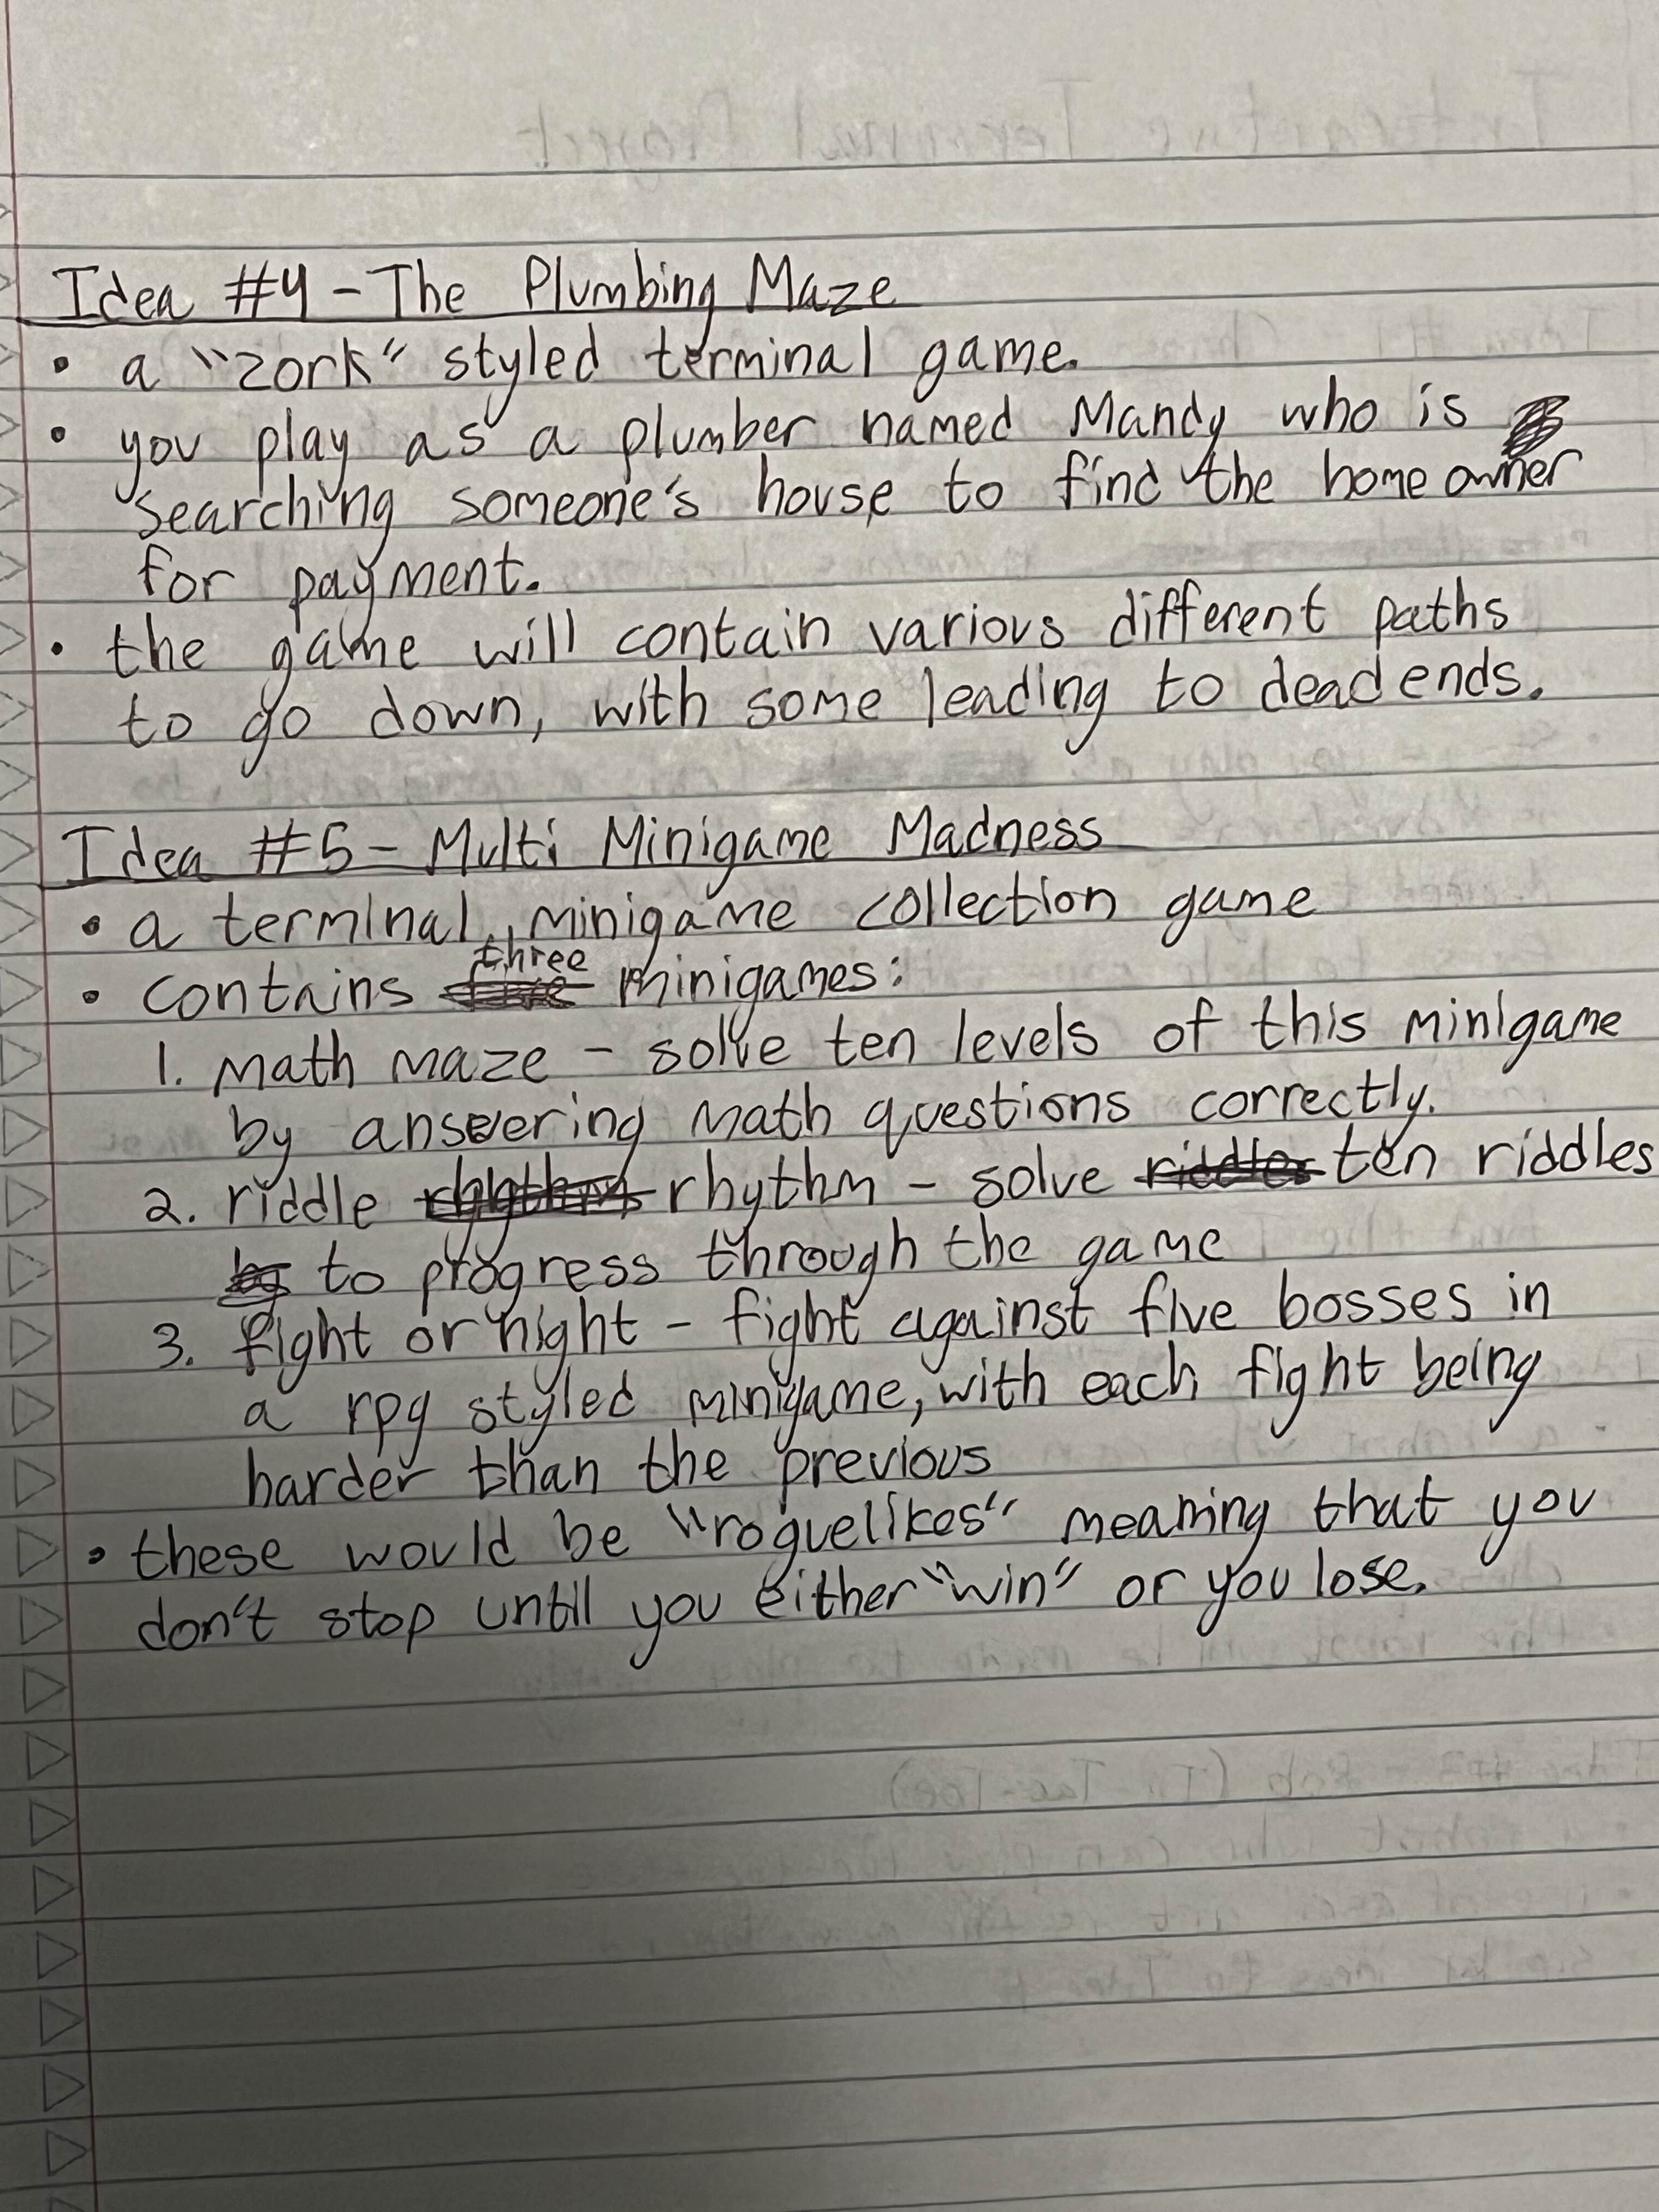 Idea #4 - The Plumbing Maze
• a "zork" styled terminal game.
• you play as a plumber named Mandy who is
searching someone's house to find the home owner
for payment.
• the game will contain various different paths
to go down, with some leading to dead ends.
Idea #5 - Multi Minigame Madness
• a terminal minigame collection game
• contains three minigames:
1. math maze - solve ten levels of this minigame
by answering math questions correctly.
2. riddle rhythm - solve ten riddles
to progress through the game
3. fight or night - fight against five bosses in
a rpg styled minigame, with each fight being
harder than the previous
• these would be "roguelikes" meaning that you
don't stop until you either "win" or you lose.